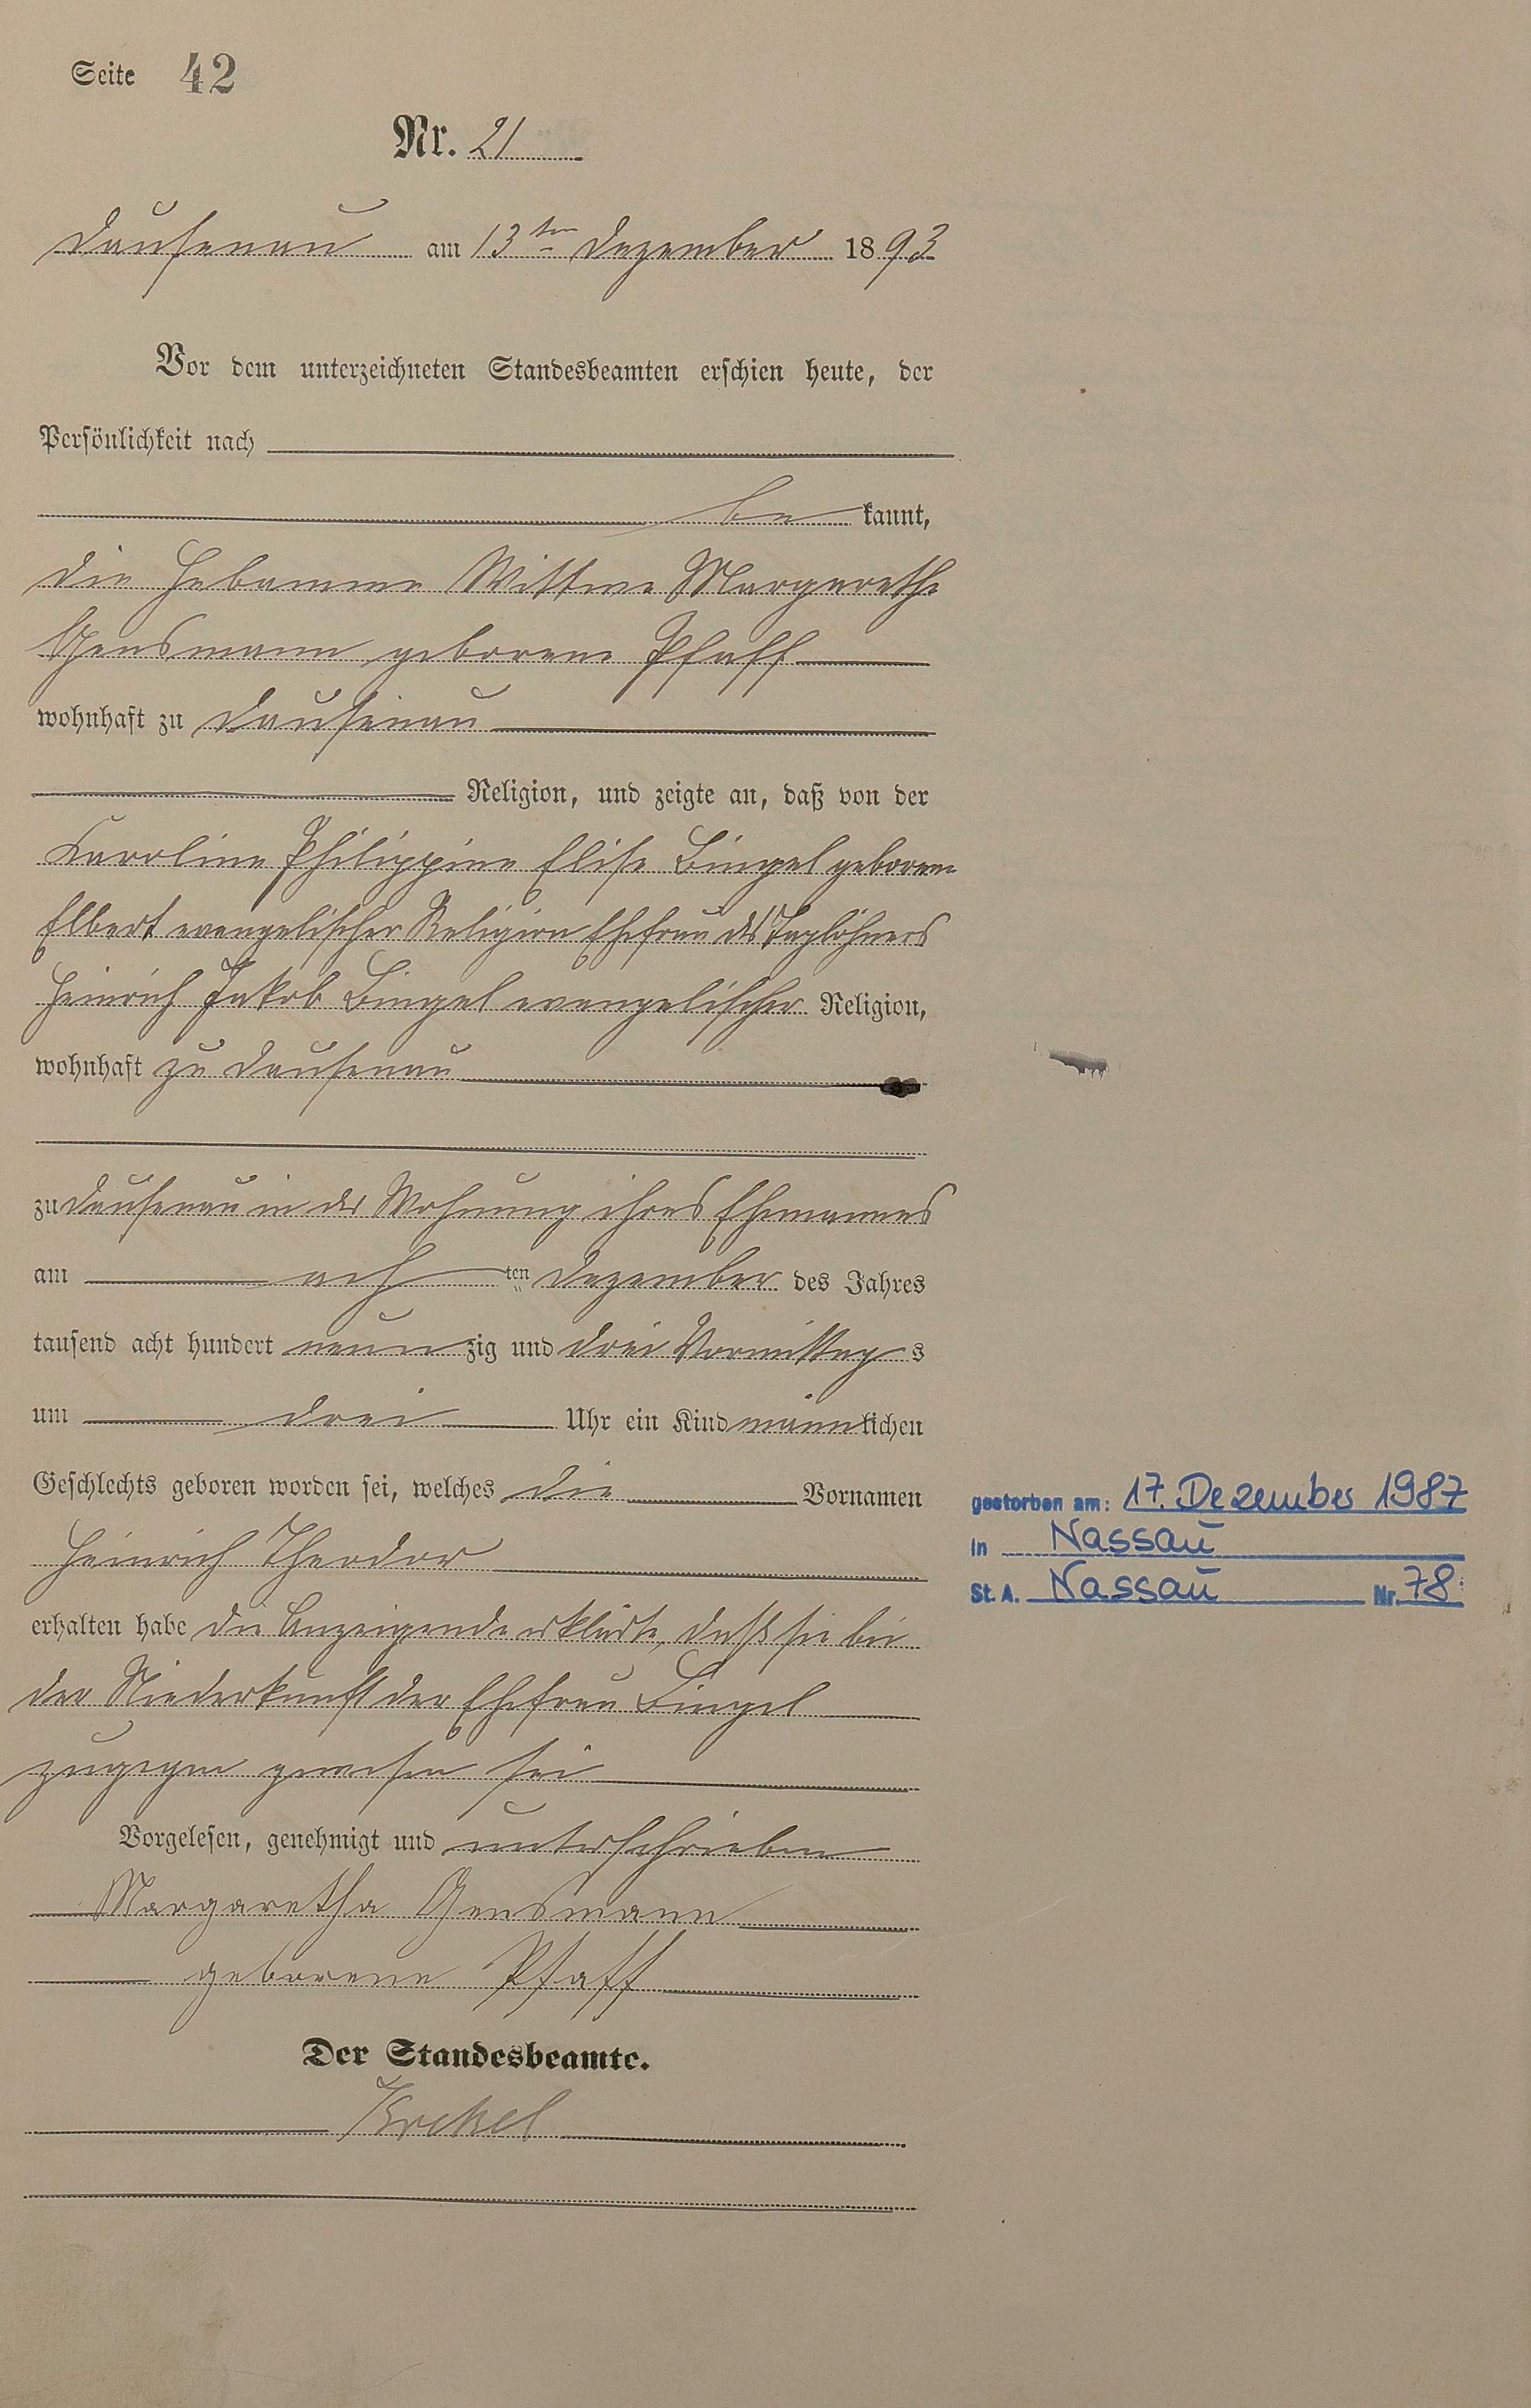 Seite 42
Nr. 21
Dausenau am 13ten Dezember 1893
Vor dem unterzeichneten Standesbeamten erschien heute, der
Persönlichkeit nach
be kannt,
die Hebamme Wittwe Margarethe
Gensmann geborene Pfaff
wohnhaft zu Dausenau
Religion, und zeigte an, daß von der
Karoline Philippine Elise Bingel geborene
Elbert evangelischer Religion Ehefrau des Taglöhners
Heinrich Jakob Bingel evangelischer Religion,
wohnhaft zu Dausenau
zu Dausenau in der Wohnung ihres Ehemannes
am ach ten Dezember des Jahres
tausend acht hundert neun zig und drei Vormittag s
um drei Uhr ein Kind männ lichen
Geschlechts geboren worden sei, welches die Vornamen
Heinrich Theodor
erhalten habe die Anzeigende erklärte, daß sie bei
der Niederkunft der Ehefrau Bingel
zugegen gewesen sei
Vorgelesen, genehmigt und unterschrieben
Margaretha Gensmann
geborene Pfaff
Der Standesbeamte.
gestorben am: 17. Dezember 1987
in Nassau
St. A. Nassau Nr. 78